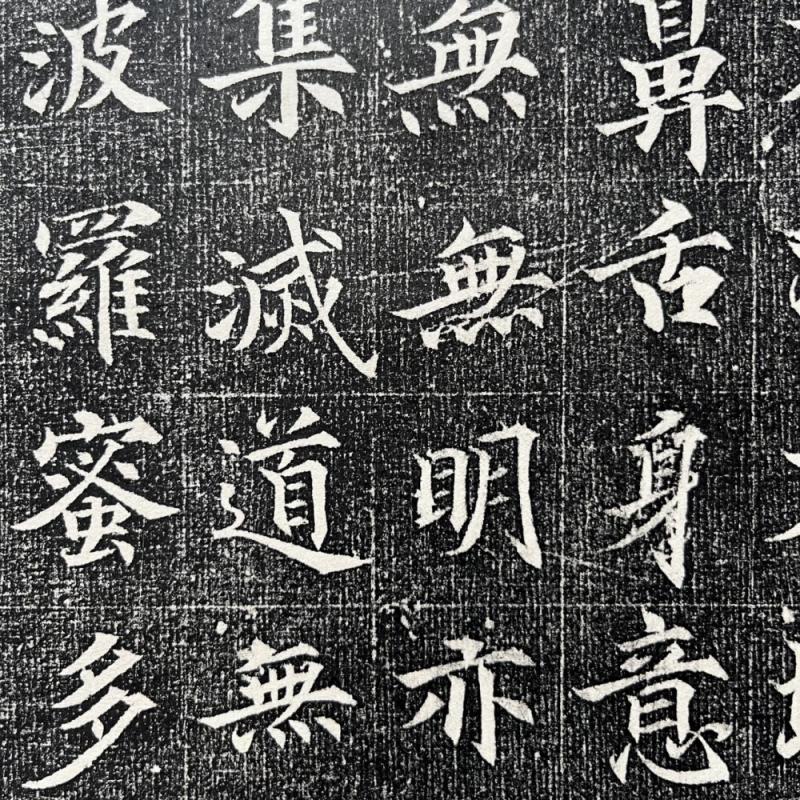 鼻舌身意
無無明亦
集滅道無
波羅蜜多